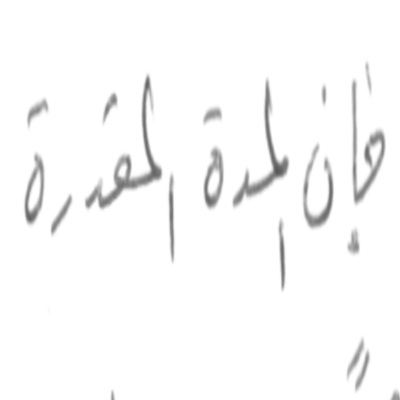 فإن المدة المقدرة